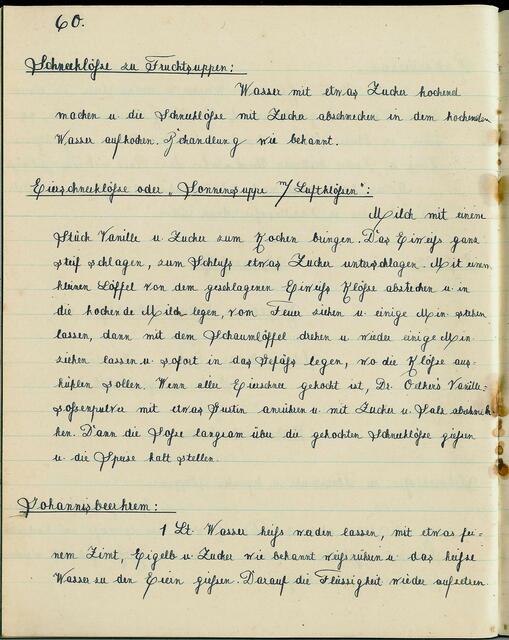 60.
Schneeklöße zu Fruchtsuppen:
Wasser mit etwas Zucker kochend
machen u. die Schneeklöße mit Zucker abschmecken in dem kochenden
Wasser aufkochen. B'handlung wie bekannt.
Eierschneeklöße oder „Sonnensuppe m/ Luftklößen":
Milch mit einem
Stück Vanille u. Zucker zum Kochen bringen. Das Eiweiß ganz
steif schlagen, zum Schluß etwas Zucker unterschlagen. Mit einem
kleinen Löffel von dem geschlagenen Eiweiß Klöße abstechen u. in
die kochende Milch legen, vom Feuer ziehen u. einige Min. stehen
lassen, dann mit dem Schaumlöffel drehen u. wieder einige Min.
ziehen lassen u. sofort in das Gefäß legen, wo die Klöße aus-
kühlen sollen. Wenn aller Eierschnee gekocht ist, Dr. Oetker's Vanille-
soßenpulver mit etwas Gustin anrühren u. mit Zucker u. Salz abschmek-
ken. Dann die Soße langsam über die gekochten Schneeklöße gießen
u. die Speise kalt stellen.
Johannisbeerkrem:
1 Lt. Wasser heiß werden lassen, mit etwas fei-
nem Zimt, Eigelb u. Zucker wie bekannt weiß rühren u. das heiße
Wasser zu den Eiern gießen. Darauf die Flüssigkeit wieder aufsetzen